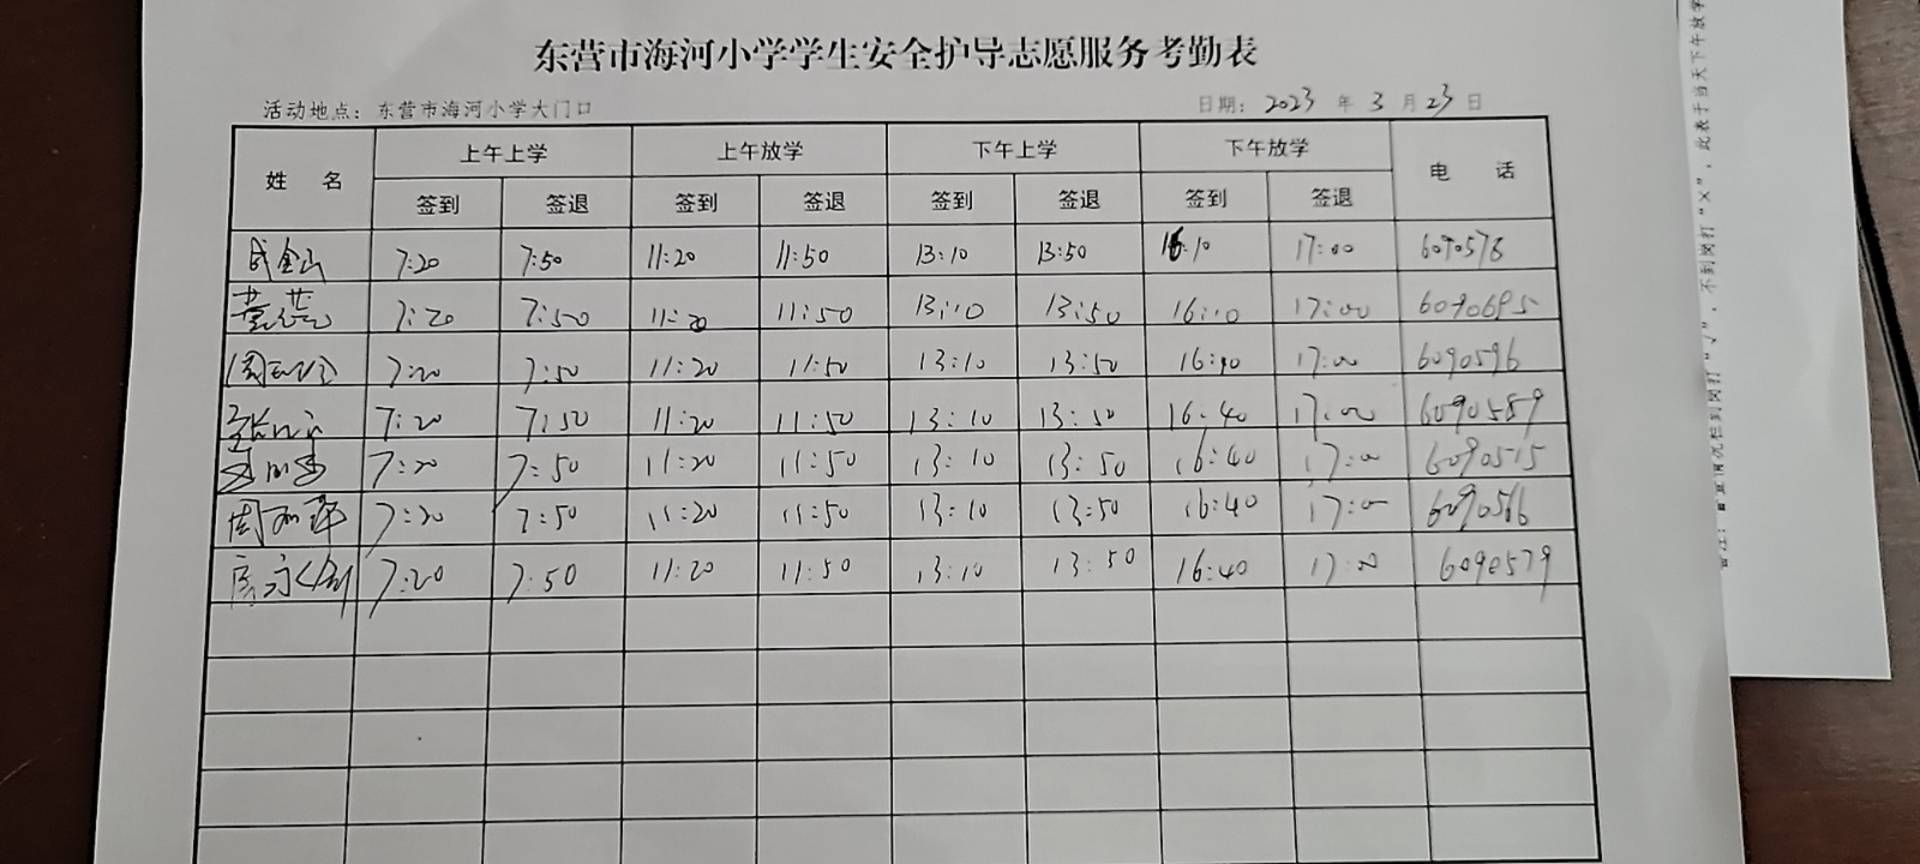 东营市海河小学学生安全护导志愿服务考勤表
活动地点：东营市海河小学大门口 日期：2023 年 3 月 23 日
姓 名 上午上学 上午放学 下午上学 下午放学 电 话
签到 签退 签到 签退 签到 签退 签到 签退
7:20 7:50 11:20 11:50 13:10 13:50 16:10 17:00 6090578
7:20 7:50 11:20 11:50 13:10 13:50 16:10 17:00 6090695
7:20 7:50 11:20 11:50 13:10 13:50 17:00 6090596
7:20 7:50 11:20 11:50 13:10 13:50 16:40 17:00 6090589
7:20 7:50 11:20 11:50 13:10 13:50 16:40 17:00 6090515
周 7:20 7:50 11:20 11:50 13:10 13:50 16:40 17:00
7:20 7:50 11:20 11:50 13:10 13:50 16:40 17:00 6090579
到岗打“√”，不到岗打“×”，此表于当天下午放学